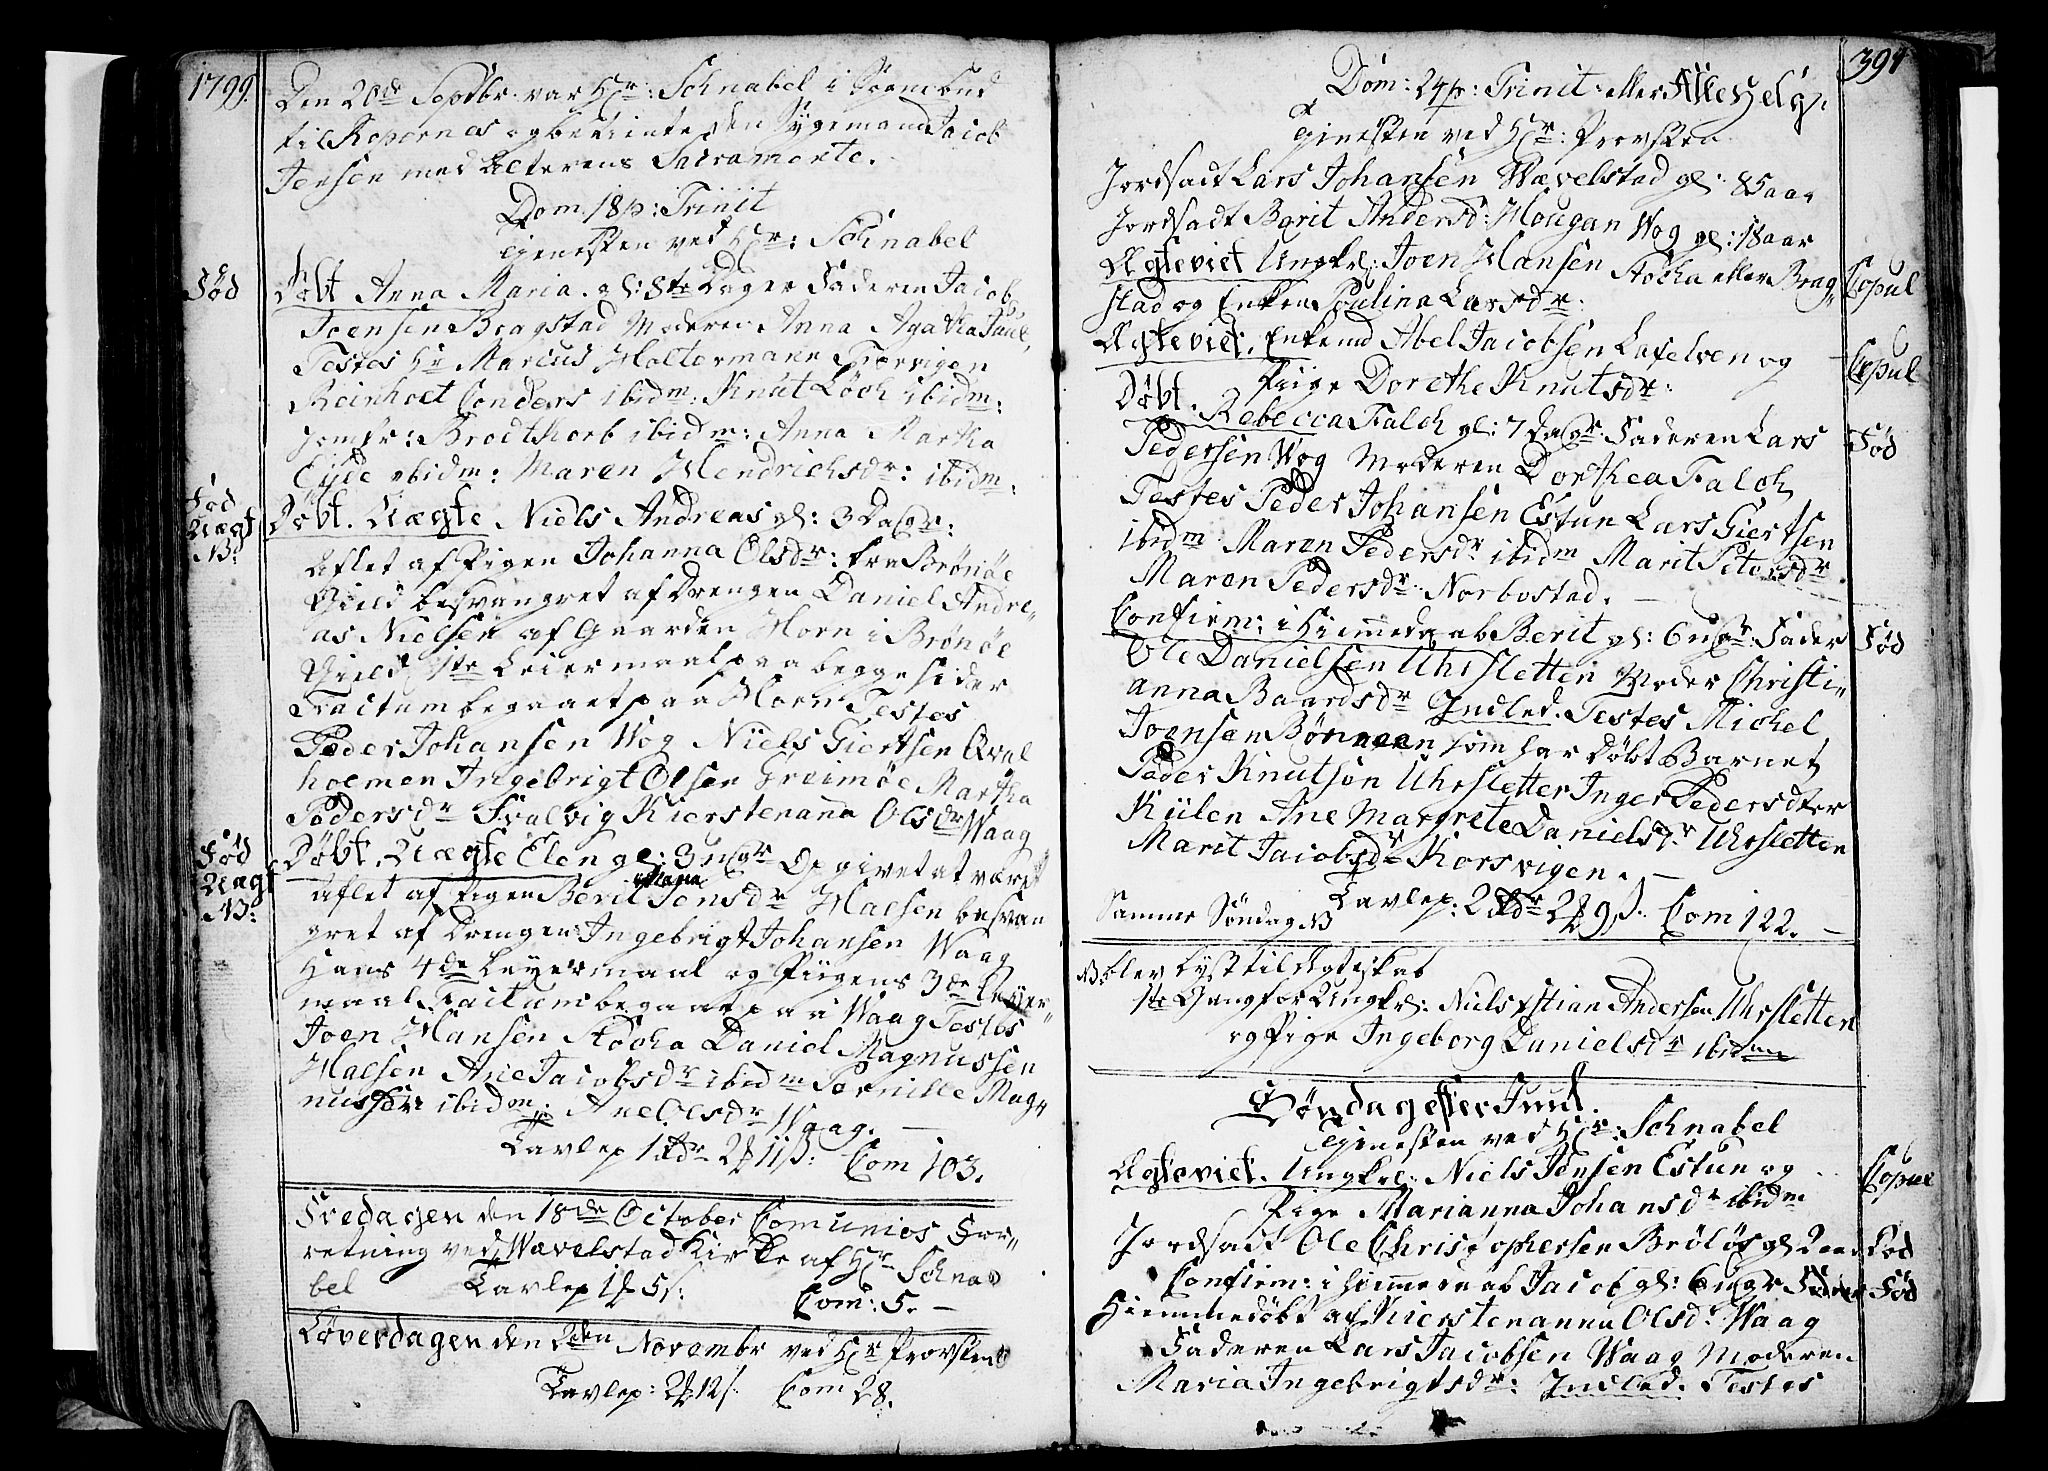 1799.
Den 20de Septbr. var Hr: Schnabel i Soenebud
til Repernes og betiente den Sygemand Jacob
Jensen med Alterens Sacramente.
Dom. 18 p: Trinit
Tienesten ved Hr: Schnabel
Fød
Døbt Anna Maria. gl: 8te Dager Faderen Jacob
Joensen Bragstad Moderen Anna Agatha Paul,
Testes Hr Marcus Holtermann Tiærvigen
Reinholt Conders ibidm: Knut Løch ibidm:
Jomfr: Brodtkorb ibidm: Anna Martha
Eyde ibidm: Maren Hendrichsdr: ibidm:
Fød
Uægt
NB:
Døbt. Uægte Niels Andreas gl: 3 Dagr:
Aflet af Pigen Johanna Olsdr: fra Brønøe
Gield besvangret af Drengen Daniel Andre-
as Nielsen af Gaarden Horn i Brønøe
Gield 1te Leiermaal paa begge sider
Factum begaaet paa Horn Testes
Peder Johansen Wog Niels Giertsen Qval
holmen Ingebrigt Olsen Greimøe Martha
Pedersdr Fralvig Kierstenana Olsdr Waag
Fød
Uægt
NB:
Døbt. Uægte Elen gl: 3 ugr Opgivet at være
aflet af Pigen Berit Jensdr Halsen besvan
gret af Drengen Ingebrigt Johansen Waag
Hans 4de Leyermaal og Pigens 3de Leyer-
maal Factum begaaet paa Waag Testes
Joen Hansen Støcha Daniel Magnussen
Halsen Ane Jacobsdr ibidm Pernille Mag-
nussen ibidm: Ane Olsdr Waag. —
Tavlep 1 rdr 2 ₰ 11 ß: Com 103.
Fredagen den 18de October Comunios For-
retning ved Wævelstad Kirke af Hr Schna
bel Tavlep 1 ₰ 5 ß: Com: 5. —
Løverdagen den 2den Novembr ved Hr Provsten
Tavlep: 2 ₰ 12 ß. Com 28.
391
Dom: 24 p: Trinit: eller Alle Helg:
Tienesten ved Hr: Provsten
Jordsadt Lars Johansen Wævelstad gl: 85 aar
Jordsadt Berit Andersd: Hougan Wog gl: 18 aar
Ægteviet Ungkl: Joen Hansen Støcha eller Brag-
Copul
stad og Enken Poulina Larsdr:
Ægteviet. Enkemd Abel Jacobsen Laxelven og
Copul
Piige Dorethe Knutsdr:
Døbt. Rebecca Falch gl: 7 Dagr. Faderen Lars
Fød
Pedersen Wog Moderen Dorthea Falch
Testes Peder Johansen Estun Lars Giertsen
ibidm Maren Pedersdr ibidm Marit Petersdr
Maren Pedersdr. Norbostad. —
Confirm: i Hiemmedaab Berit gl: 6 ugr. Fader
Fød
Ole Danielsen Uhrsletten Moder Christi-
anna Baardsdr Indled. Testes Michel
Joensen Bønaaen som har Døbt Barnet
Peder Knutson Uhrsletter Inger Pedersdter
Kulen Ane Margrete Danielsdr Uhrsletten
Marit Jacobsdr Korsvigen. —
Tavlep: 2 rdr 2 ₰ 9 ß. Com 122. —
Samme Søndag NB
NB blev Lyst til Ægteskab
1te Gang for Ungkl: Niels Xstian Andersen Uhrsletten
og Pige Ingeborg Danielsdr ibidm
Søndag efter Juul
Tienesten ved Hr: Schnabel
Ægteviet. Ungkl: Niels Jensen Estun og
Copul
Pige Marianna Johansdr ibidm
Jordsadt Ole Christophersen Brøløs gl 2 aar
Død
Confirm: i Hiemmedaab Jacob gl: 6 ugr Fader
Fød
Hiemmedøbt af Kierstenanna Olsdr Waag
Faderen Lars Jacobsen Waag Moderen
Maria Ingebrigtsdr: Indled. Testes